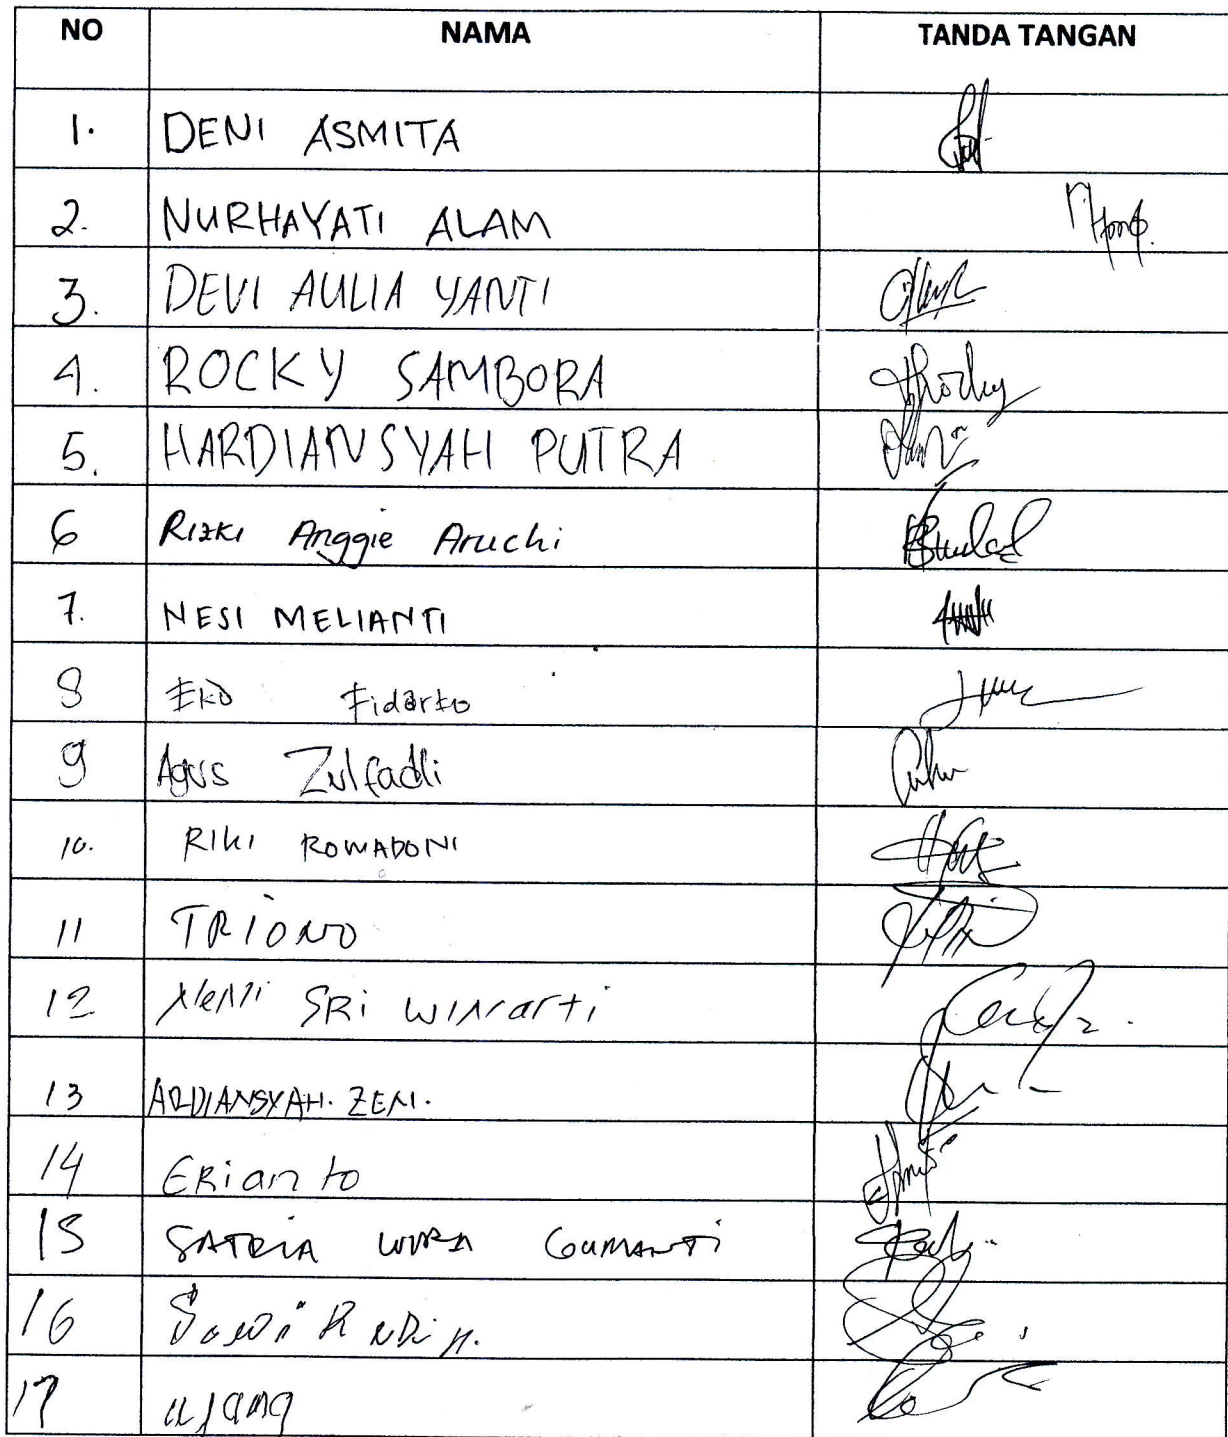 NO NAMA TANDA TANGAN
1. DENI ASMITA
2. NURHAYATI ALAM
3. DEVI AULIA YANTI
4. ROCKY SAMBORA
5. HARDIANSYAH PUTRA
6 Rizki Anggie Aruchi
7. NESI MELIANTI
8 Eko Fidarto
9 Agus Zulfadli
10. RIKI ROMADONI
11 TRIONO
12 SRi WINarti
13 ARDIANSYAH. ZEN.
14 ERianto
15 SATRIA WIRA GUMANTI
16
17 ujang